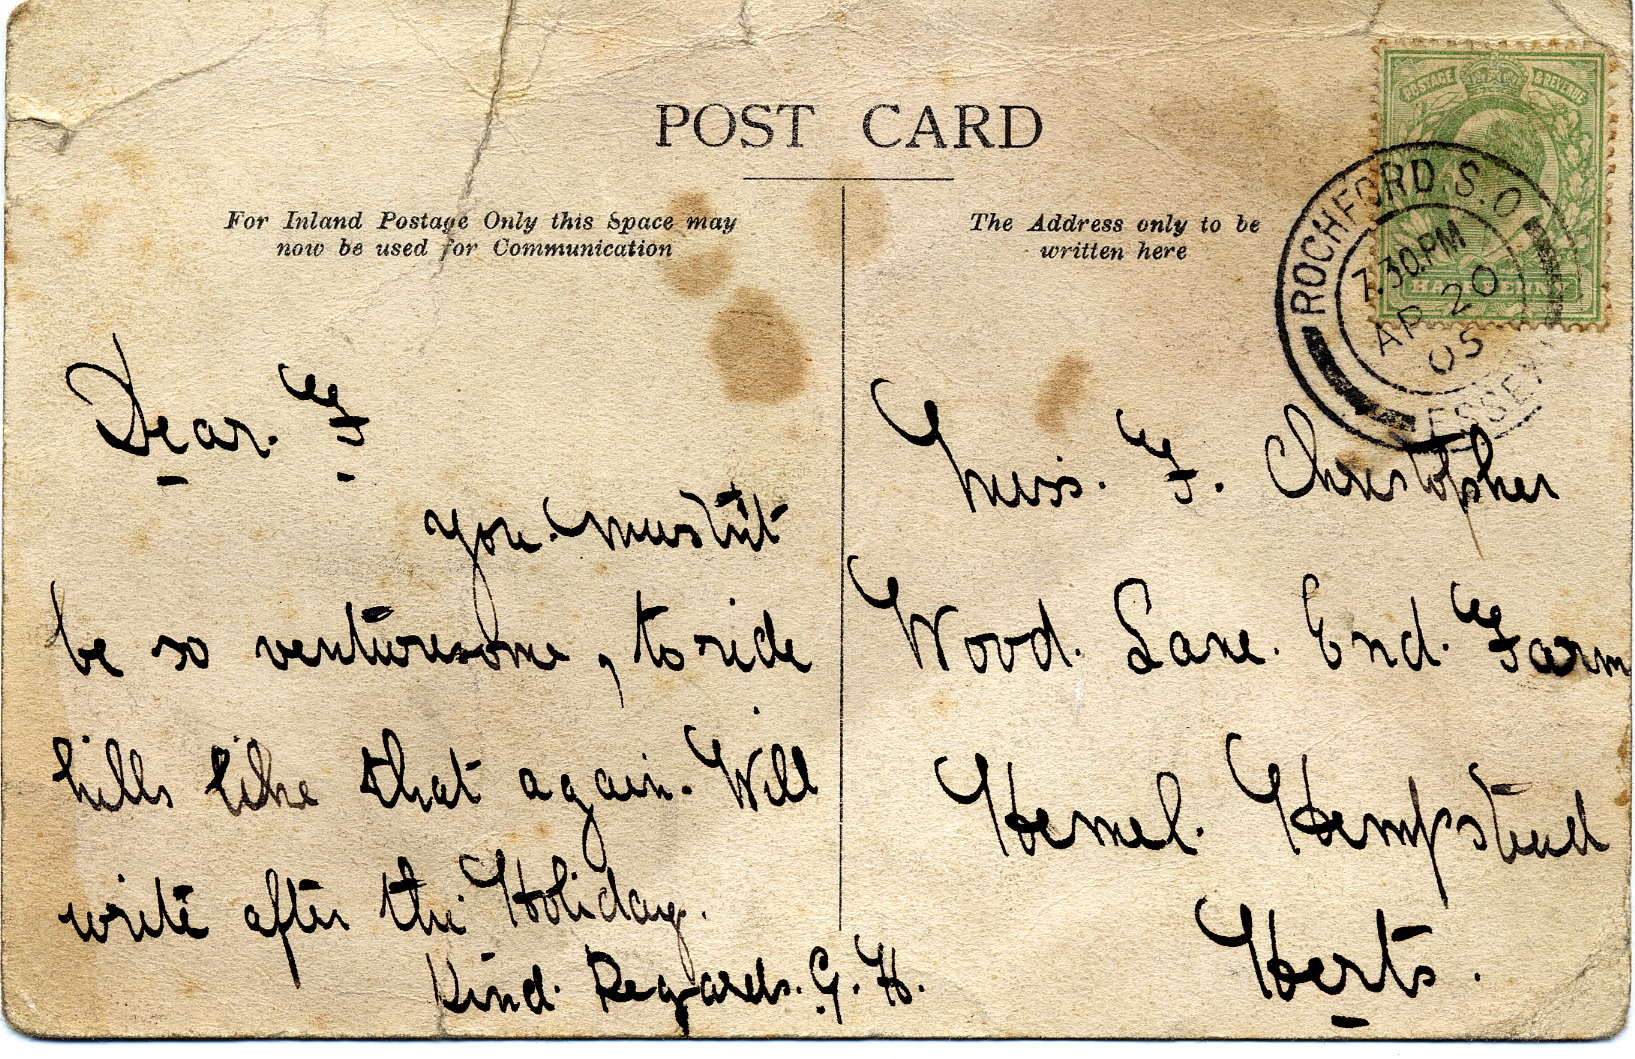 POST CARD
For Inland Postage Only this Space may
now be used for Communication
The Address only to be
written here
POSTAGE & REVENUE
HALFPENNY
ROCHFORD. S.O
7.30.PM
AP 20
05
ESSEX
Dear. F
you. mustnt
be so venturesome, to ride
hills like that again. Will
write after the Holiday.
Kind. Regards. G. H.
Miss. F. Christopher
Wood. Lane. End. Farm
Hemel. Hempstead
Herts.